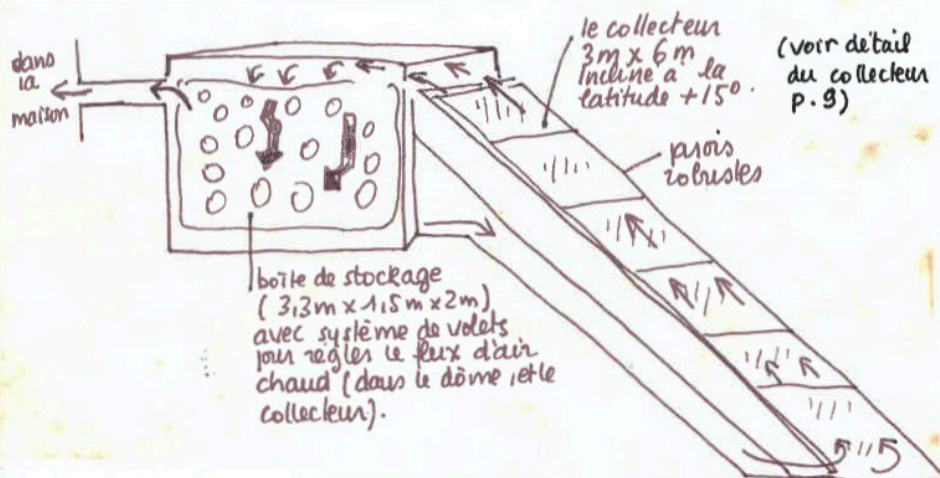 dans
la
maison
le collecteur
3m x 6m
Incliné à la
latitude +15°.
(voir détail
du collecteur
p. 9)
parois
robustes
boîte de stockage
(3,3m x 1,5m x 2m)
avec système de volets
pour régler le flux d'air
chaud (dans le dôme, et le
collecteur).